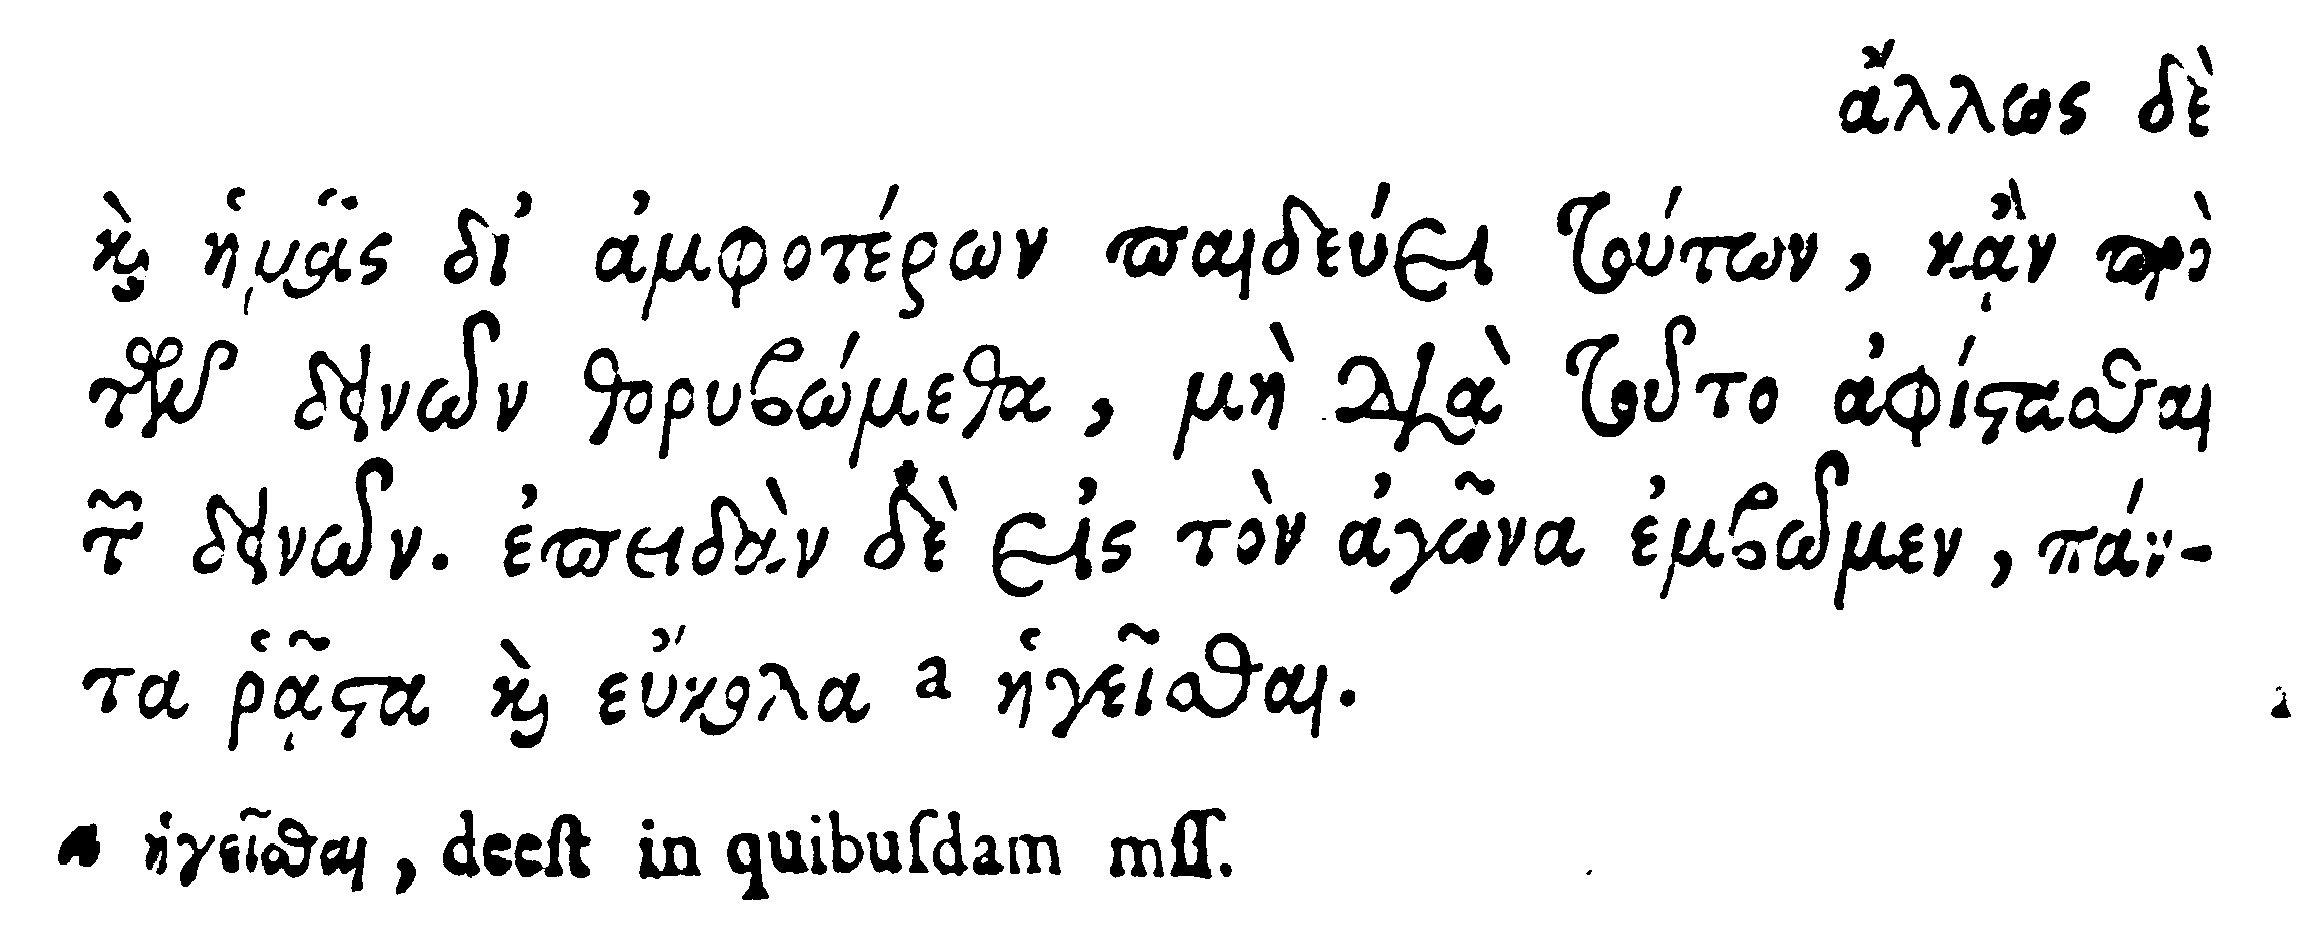 ἄλλως δὲ
καὶ ἡμᾶς δι’ ἀμφοτέρων παιδεύει τούτων, κᾂν πρὸ
τῶν δεινῶν θορυβώμεθα, μὴ διὰ τοῦτο ἀφίστασθαι
τῶν δεινῶν. ἐπειδὰν δὲ εἰς τὸν ἀγῶνα ἐμβῶμεν, πάν-
τα ῥᾷστα καὶ εὔκολα a ἡγεῖσθαι.
a ἡγεῖσθαι, deeſt in quibuſdam mſſ.